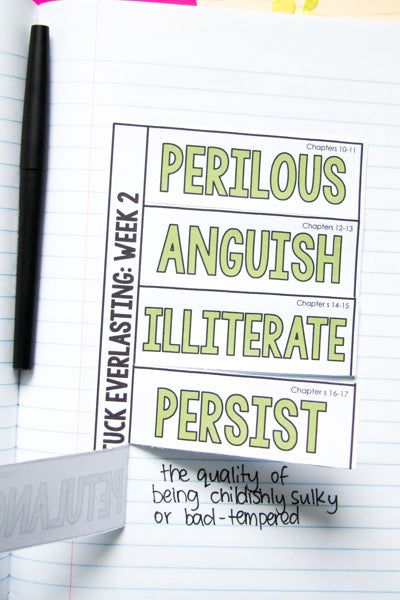 Chapters 10-11
PERILOUS
Chapters 12-13
ANGUISH
Chapters 14-15
ILLITERATE
Chapters 16-17
PERSIST
TUCK EVERLASTING: WEEK 2
the quality of
being childishly sulky
or bad-tempered
PETULAN